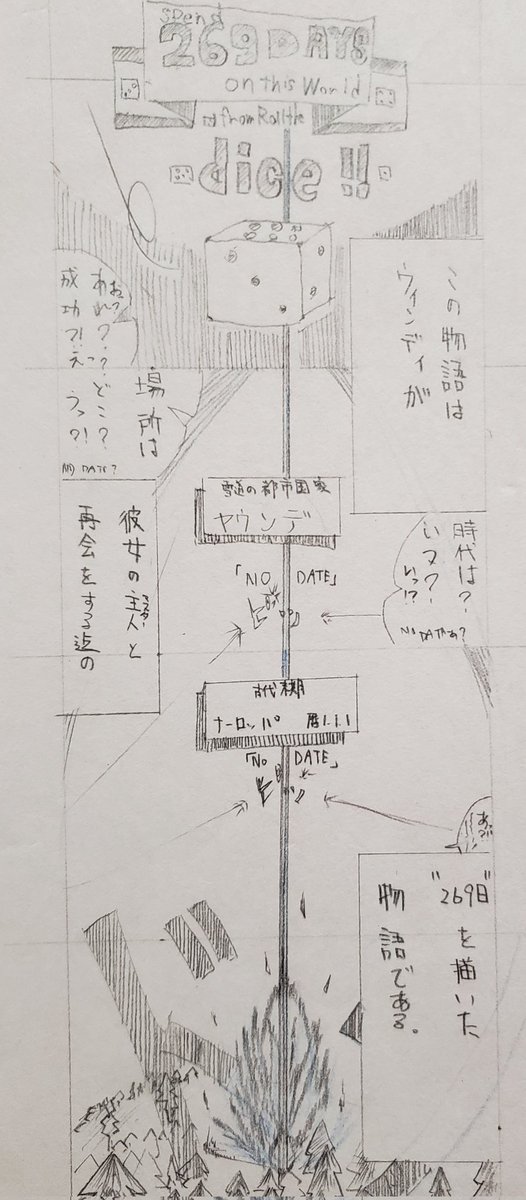 spend
269 DAYS
on this World
from Roll the
dice !!
この物語は
ウィンディが
おっ
あれ?? どこ?
成功?! えっ
うっ?!
NO DATE?
場所は
雪道の都市国家
ヤウンデ
「NO DATE」
時代は?
いつ?
いつ!?
彼女の主人と
マスター
再会をする迄の
古代末期
ナーロッパ 暦1.1.1
「No DATE」
"269日"を描いた
物語である。